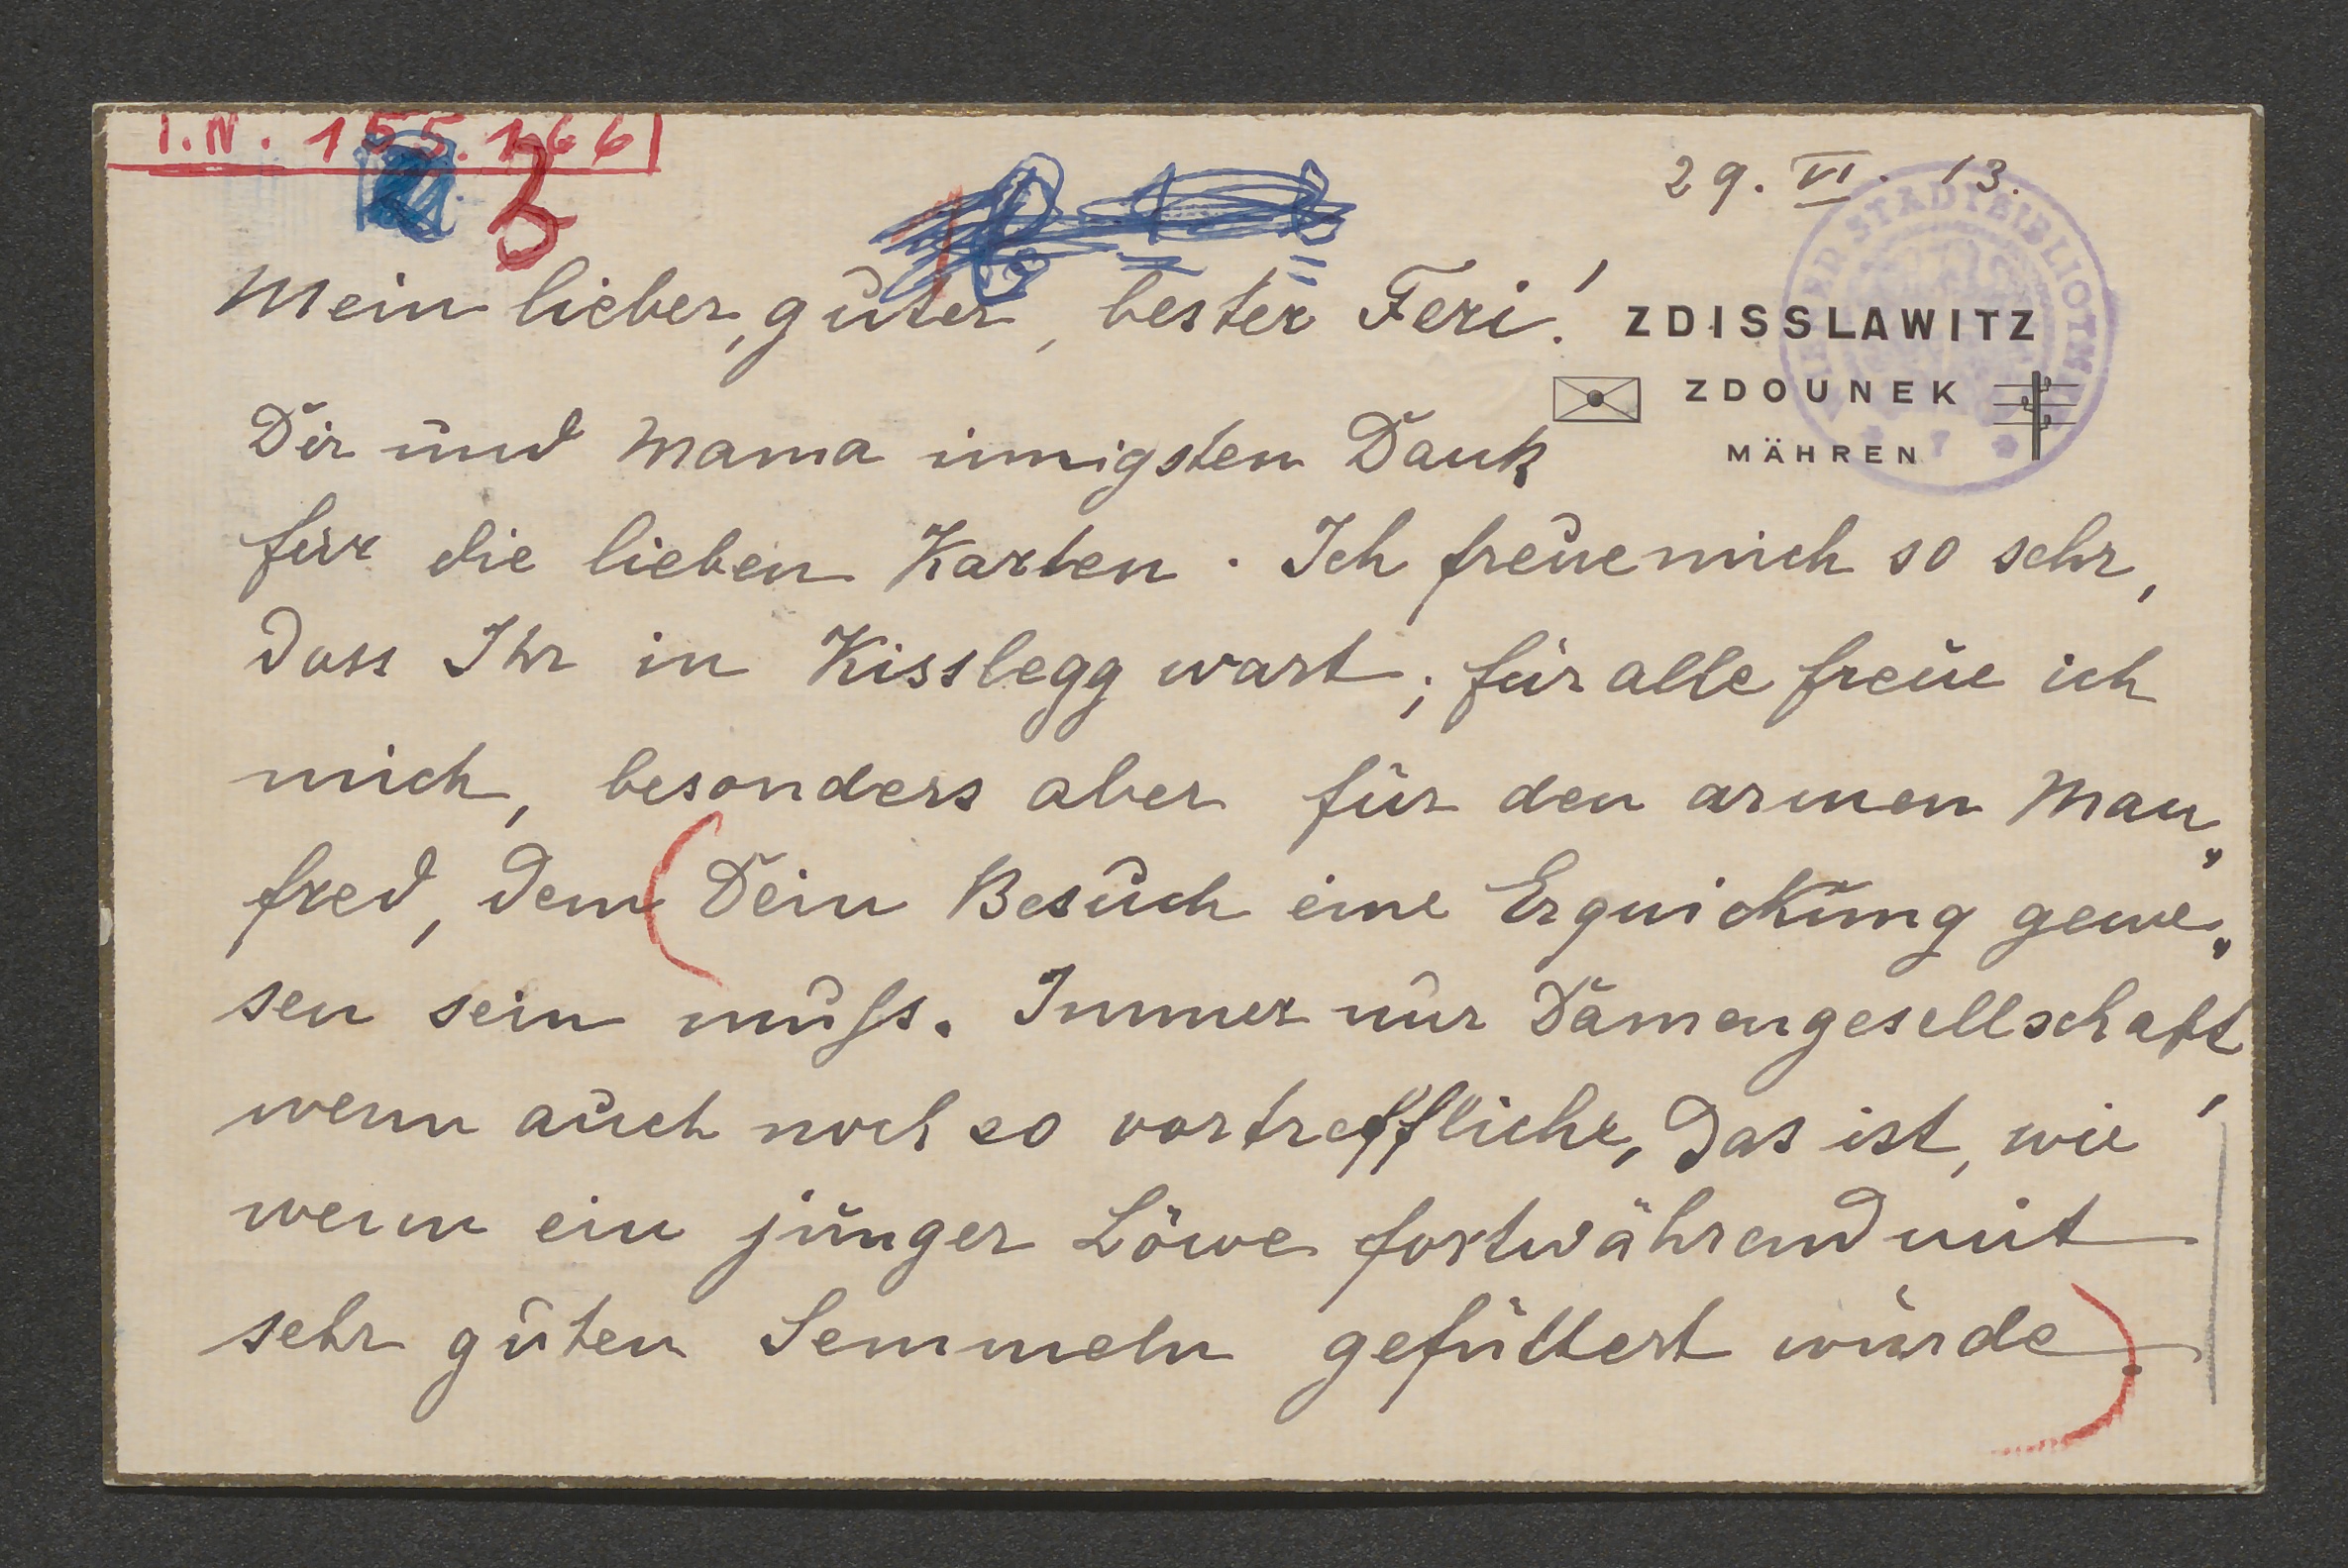 I.N. 155.166
3
29. VI. 13.
Mein lieber, guter, bester Feri!
ZDISSLAWITZ
ZDOUNEK
MÄHREN
WIENER STADTBIBLIOTHEK
Dir und Mama innigsten Dank
für die lieben Karten. Ich freue mich so sehr,
dass Ihr in Kisslegg wart; für alle freue ich
mich, besonders aber für den armen Man„
fred, dem (Dein Besuch eine Erquickung gewe„
sen sein muſs. Immer nur Damengesellschaft,
wenn auch noch so vortreffliche, das ist, wie
wenn ein junger Löwe fortwährend mit
sehr guten Semmeln gefüttert würde).